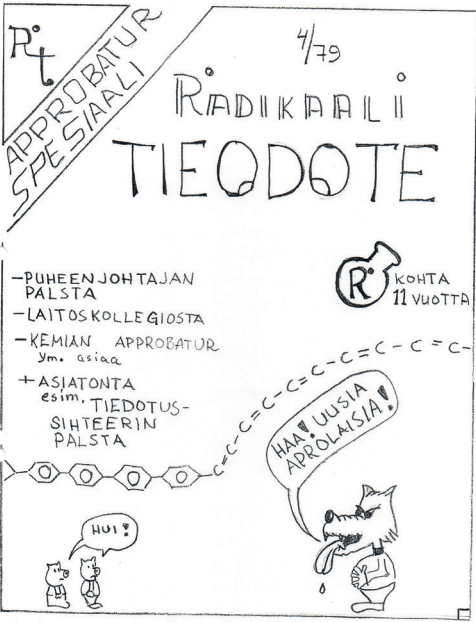 R°t
APPROBATUR
SPESIAALI
4/79
R°ADIKAALI
TIEODOTE
-PUHEENJOHTAJAN
PALSTA
-LAITOSKOLLEGIOSTA
-KEMIAN APPROBATUR
ym. asiaa
+ ASIATONTA
esim. TIEDOTUS-
SIHTEERIN
PALSTA
R°
KOHTA
11 VUOTTA
C=C-C=C-C=C-C=C-C=C-
HAA! UUSIA
APROLAISIA!
HUI!